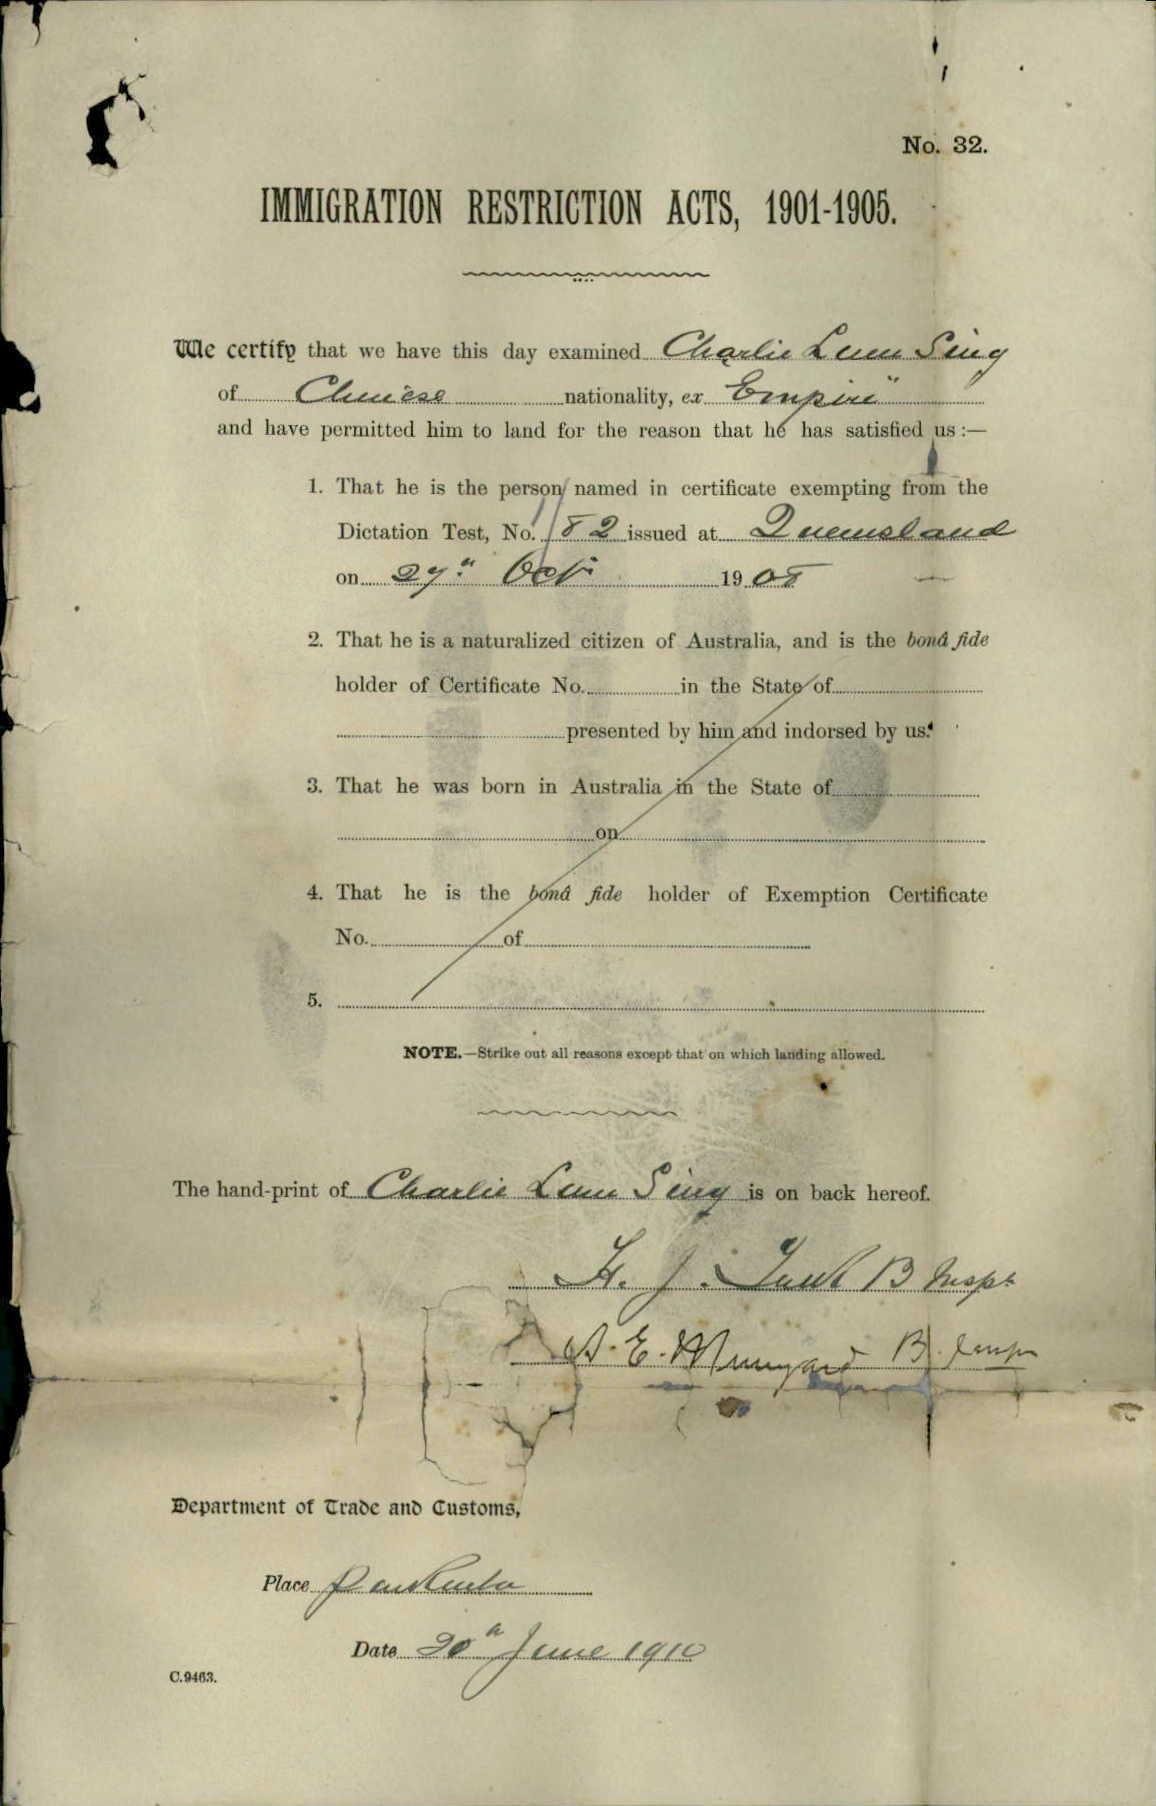 No. 32.
IMMIGRATION RESTRICTION ACTS, 1901-1905.
We certify that we have this day examined Charlie Lum Sing
of Chinese nationality, ex "Empire"
and have permitted him to land for the reason that he has satisfied us :—
1. That he is the person named in certificate exempting from the
Dictation Test, No. 82 issued at Queensland
on 27th Oct 1908
2. That he is a naturalized citizen of Australia, and is the bonâ fide
holder of Certificate No. in the State of
presented by him and indorsed by us.
3. That he was born in Australia in the State of
on
4. That he is the bonâ fide holder of Exemption Certificate
No. of
5.
NOTE.—Strike out all reasons except that on which landing allowed.
The hand-print of Charlie Lum Sing is on back hereof.
H. J. B Inspr
E. B.
Department of Trade and Customs,
Place
Date 20th June 1910
C.9463.